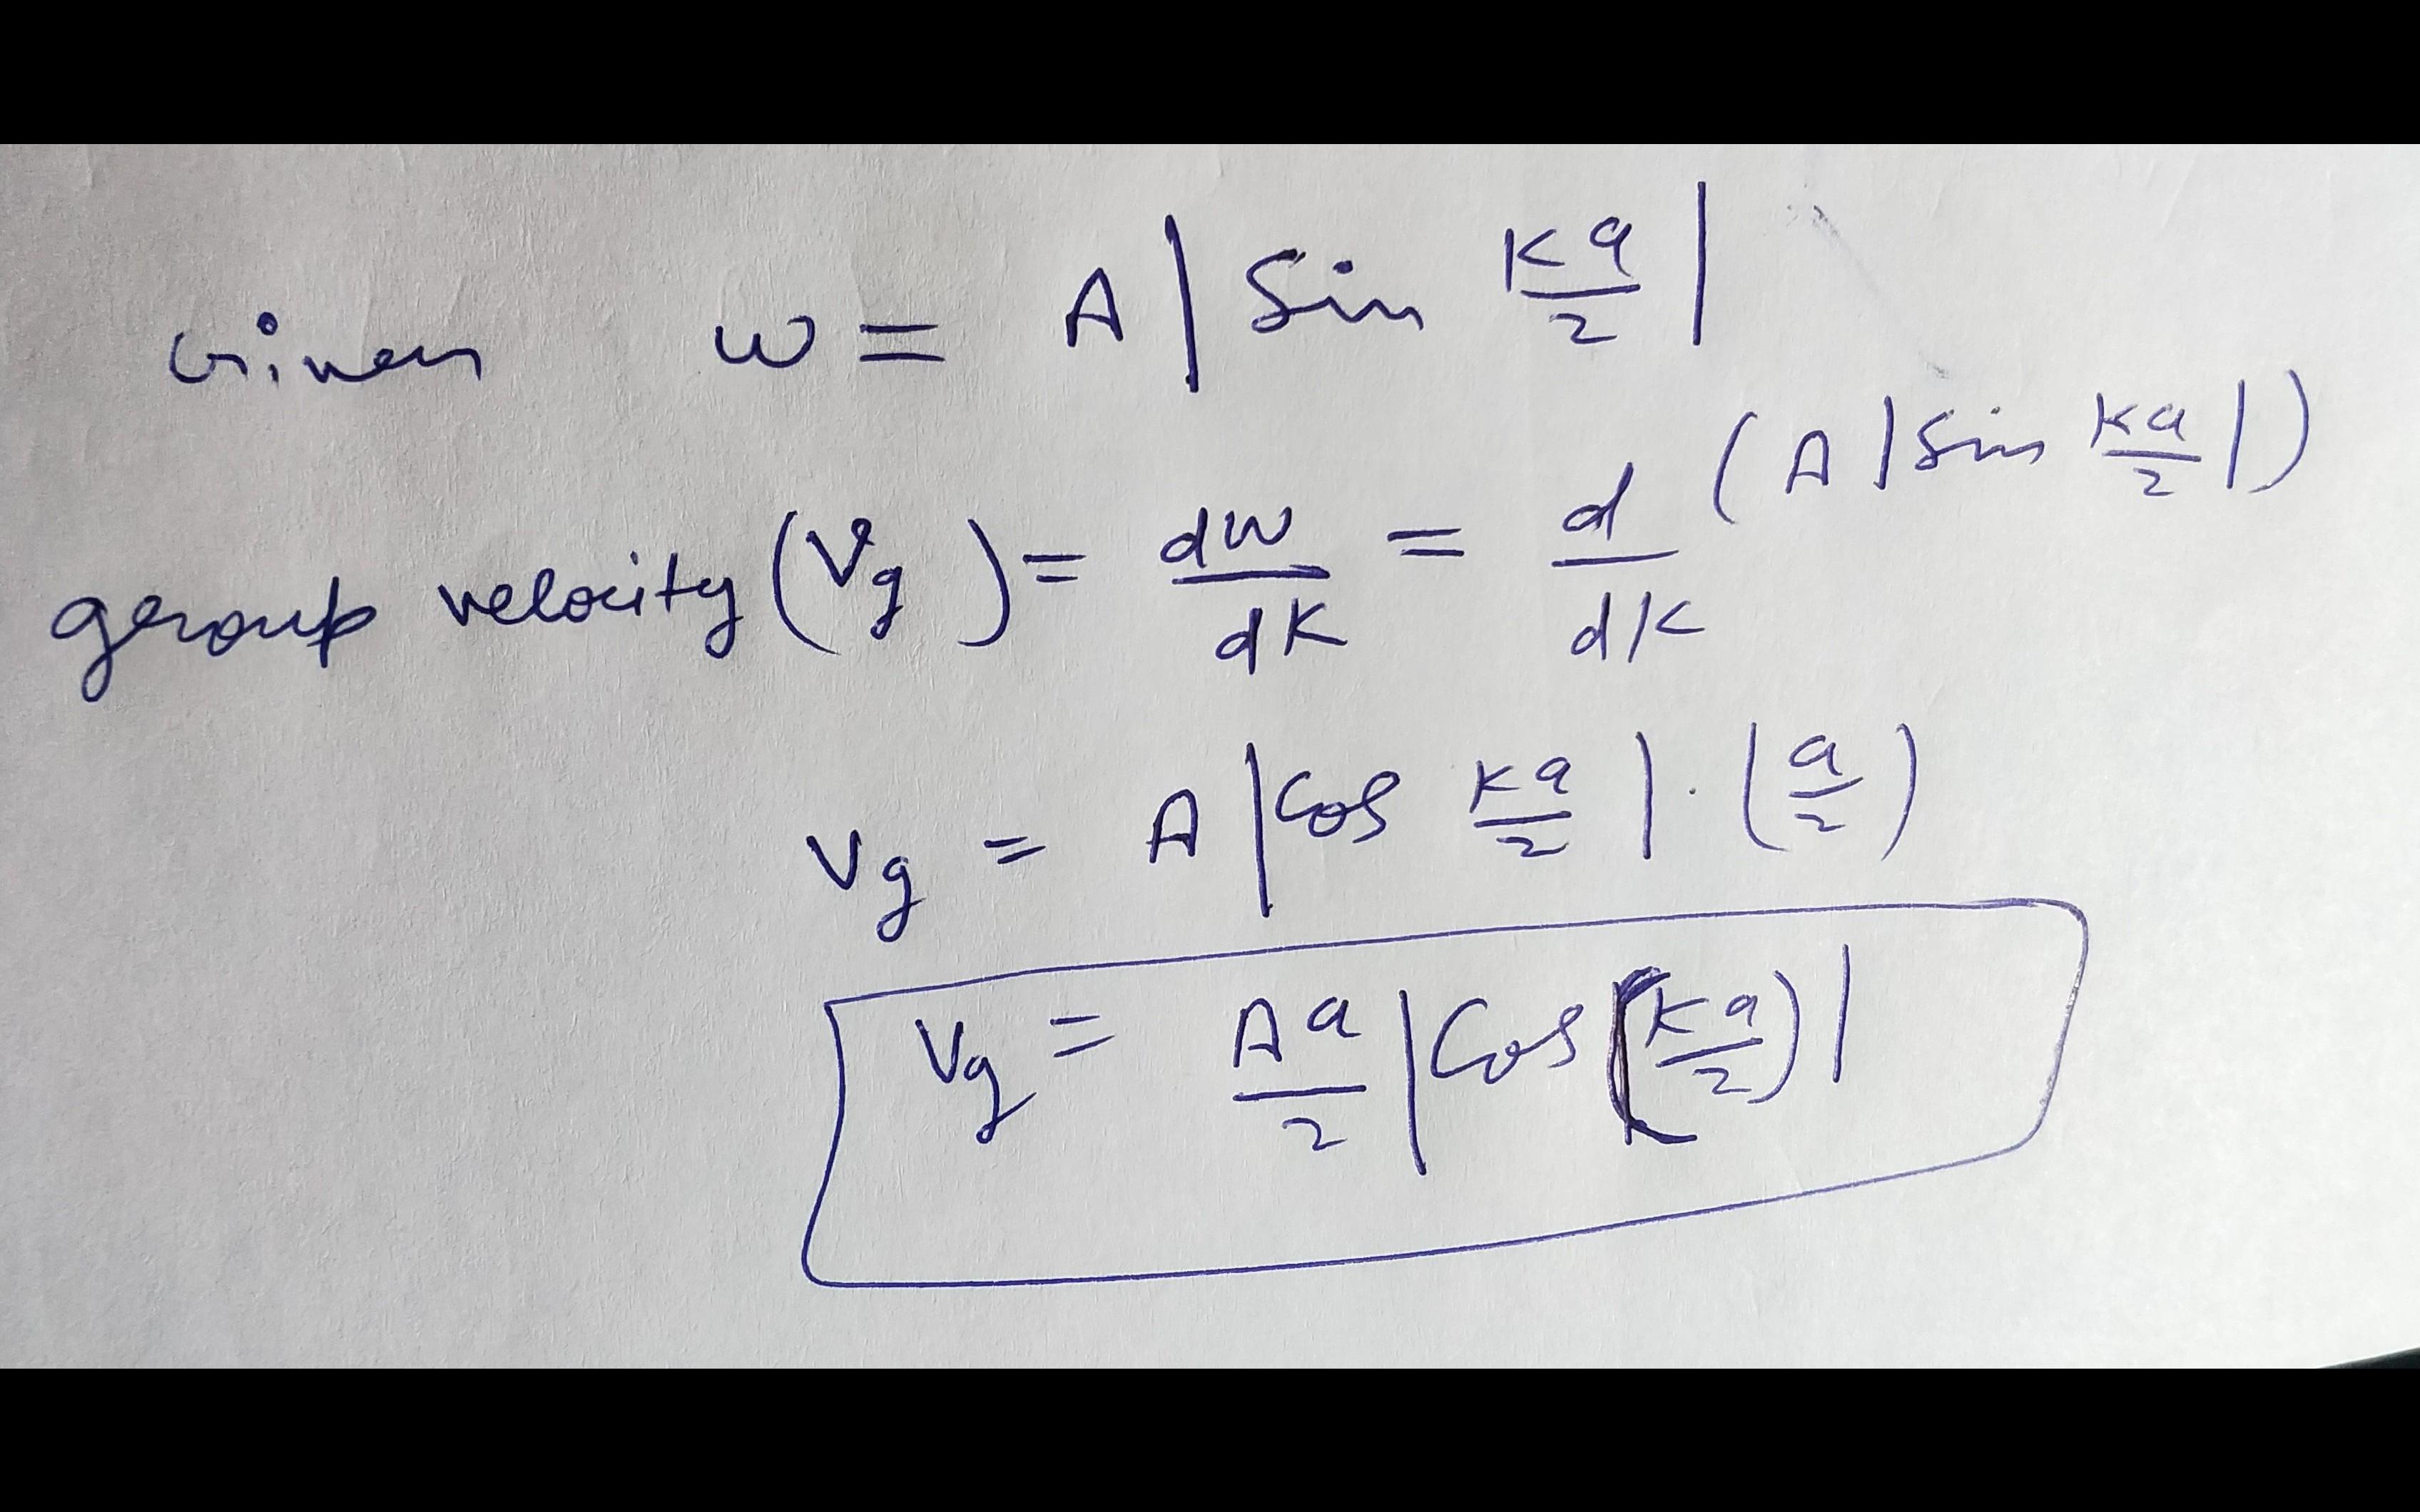 Given w = A | Sin Ka/2 |
group velocity (Vg) = dw/dK = d/dK (A | Sin Ka/2 |)
Vg = A | Cos Ka/2 | . (a/2)
Vg = Aa/2 | Cos (Ka/2) |